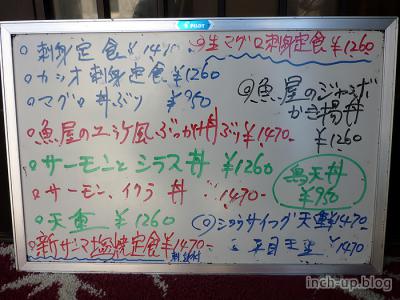 PILOT
刺身定食 ¥1470
カツオ刺身定食 ¥1260
マグロ丼ぶり ¥950
魚屋のユッケ風ぶっかけ丼ぶり ¥1470-
サーモンとシラス丼 ¥1260
サーモン、イクラ丼 1470-
天重 ¥1260
新サンマ塩焼定食 ¥1470-
刺身付
生マグロ刺身定食 ¥1260
魚屋のジャンボ
かき揚丼
¥1260
鳥天丼
¥950
天重 ¥1470-
¥1470
inch-up.blog